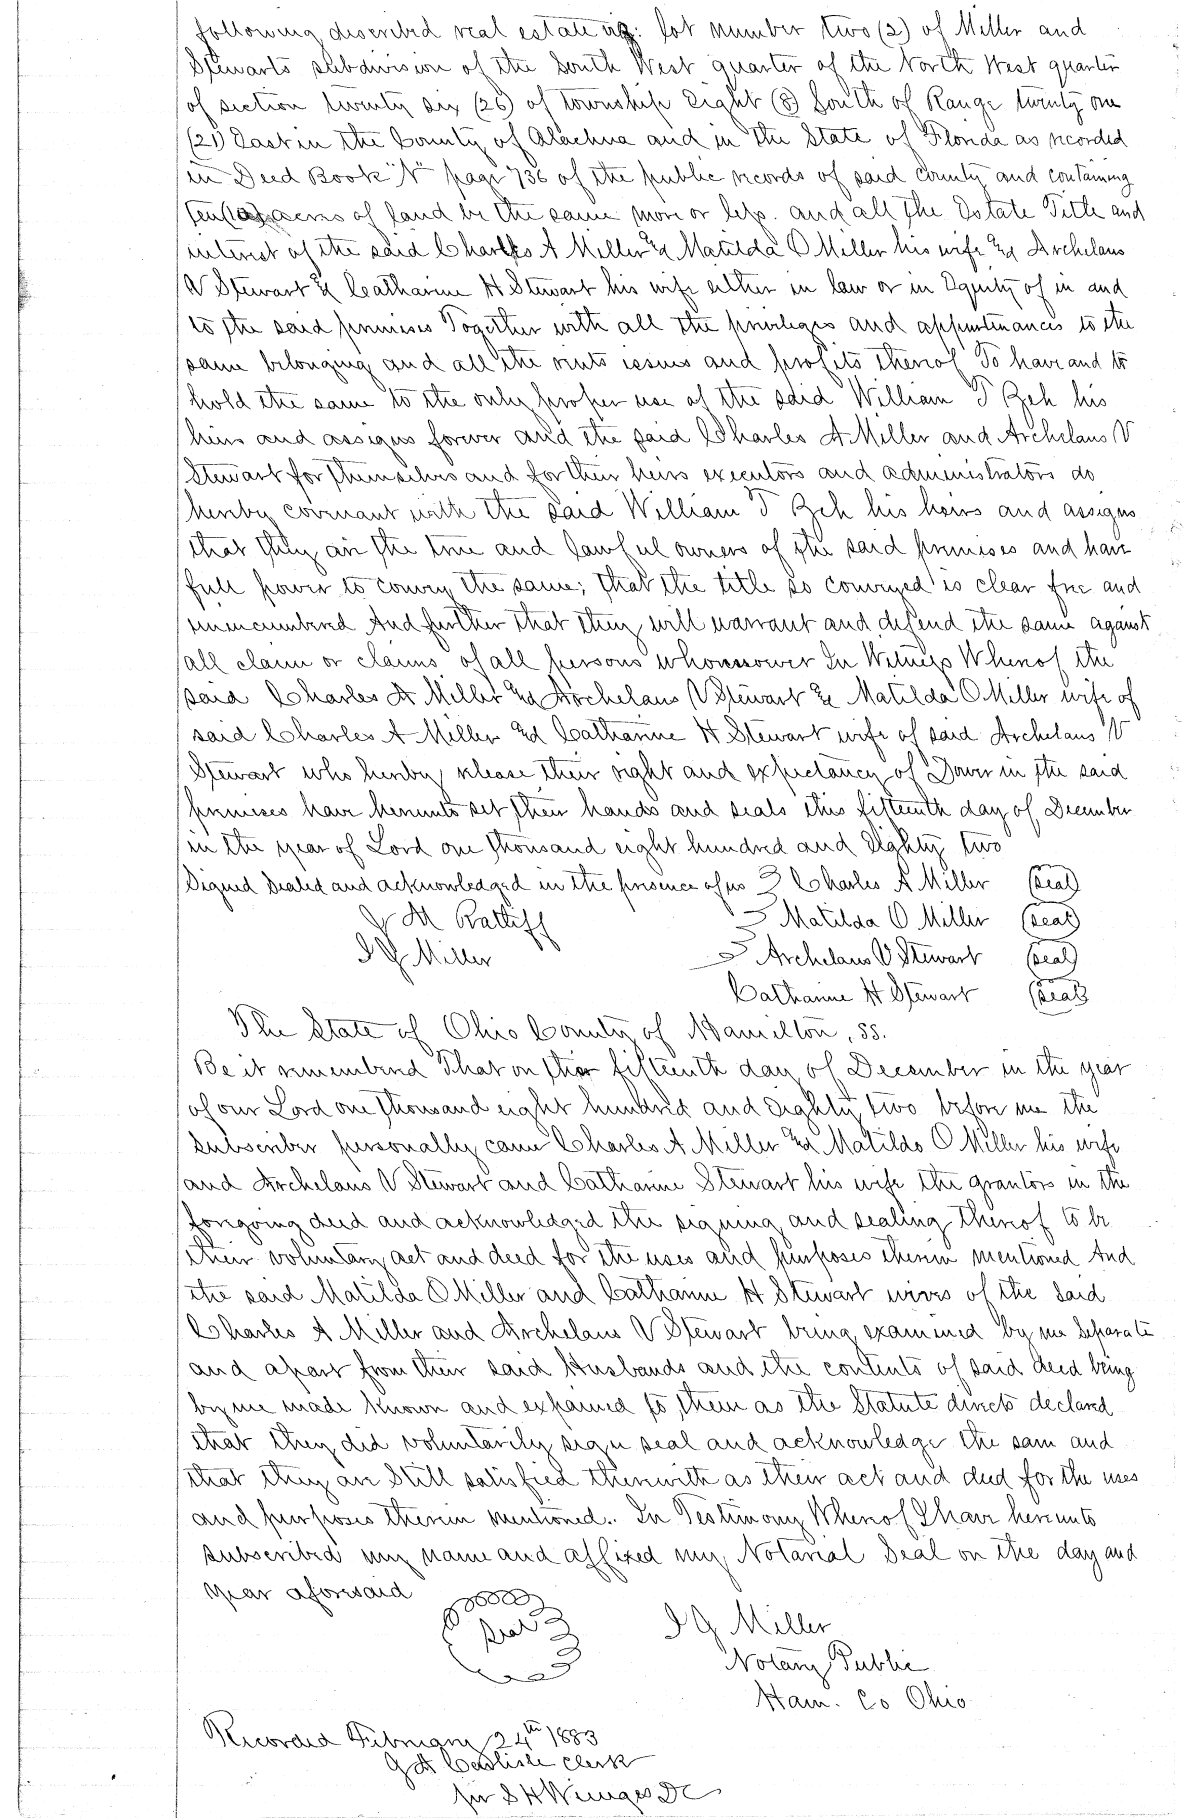 following described real estate viz: lot number two (2) of Miller and
Stewarts subdivision of the South West quarter of the North West quarter
of section twenty six (26) of township Eight (8) South of Range twenty one
(21) East in the County of Alachua and in the State of Florida as recorded
in Deed Book "N" page 736 of the public records of said County and containing
ten (10) acres of land be the same more or less. and all the Estate Title and
interest of the said Charles A Miller & Matilda O Miller his wife & Archelaus
V Stewart & Catharine H Stewart his wife either in law or in Equity of in and
to the said premises Together with all the privileges and appurtenances to the
same belonging and all the rents issues and profits thereof To have and to
hold the same to the only proper use of the said William T Zeh his
heirs and assigns forever and the said Charles A Miller and Archelaus V
Stewart for themselves and for their heirs executors and administrators do
hereby covenant with the said William T Zeh his heirs and assigns
that they are the true and lawful owners of the said premises and have
full power to convey the same; that the title so conveyed is clear free and
unencumbered And further that they will warrant and defend the same against
all claim or claims of all persons whomsoever In Witness Whereof the
said Charles A Miller & Archelaus V Stewart & Matilda O Miller wife of
said Charles A Miller & Catharine H Stewart wife of said Archelaus V
Stewart who hereby release their right and expectancy of Dower in the said
premises have hereunto set their hands and seals this fifteenth day of December
in the year of Lord one thousand eight hundred and Eighty two
Signed Sealed and acknowledged in the presence of us Charles A Miller (seal)
J M Ratliff Matilda O Miller (seal)
I G Miller Archelaus V Stewart (seal)
Catharine H Stewart (seal)
The State of Ohio County of Hamilton, SS.
Be it remembered That on this fifteenth day of December in the year
of our Lord one thousand eight hundred and Eighty two before me the
subscriber personally came Charles A Miller & Matilda O Miller his wife
and Archelaus V Stewart and Catharine Stewart his wife the grantors in the
foregoing deed and acknowledged the signing and sealing thereof to be
their voluntary act and deed for the uses and purposes therein mentioned And
the said Matilda O Miller and Catharine H Stewart wives of the said
Charles A Miller and Archelaus V Stewart being examined by me Separate
and apart from their said Husbands and the contents of said deed being
by me made known and expained to them as the Statute directs declared
that they did voluntarily sign seal and acknowledge the sam and
that they are Still satisfied therewith as their act and deed for the uses
and purposes therein mentioned. In Testimony Whereof I have hereunto
subscribed my name and affixed my Notarial Seal on the day and
year aforesaid
Seal I G Miller
Notary Public
Ham. Co Ohio
Recorded February 24th 1883
Carlisle Clerk
per S H Wienges DC